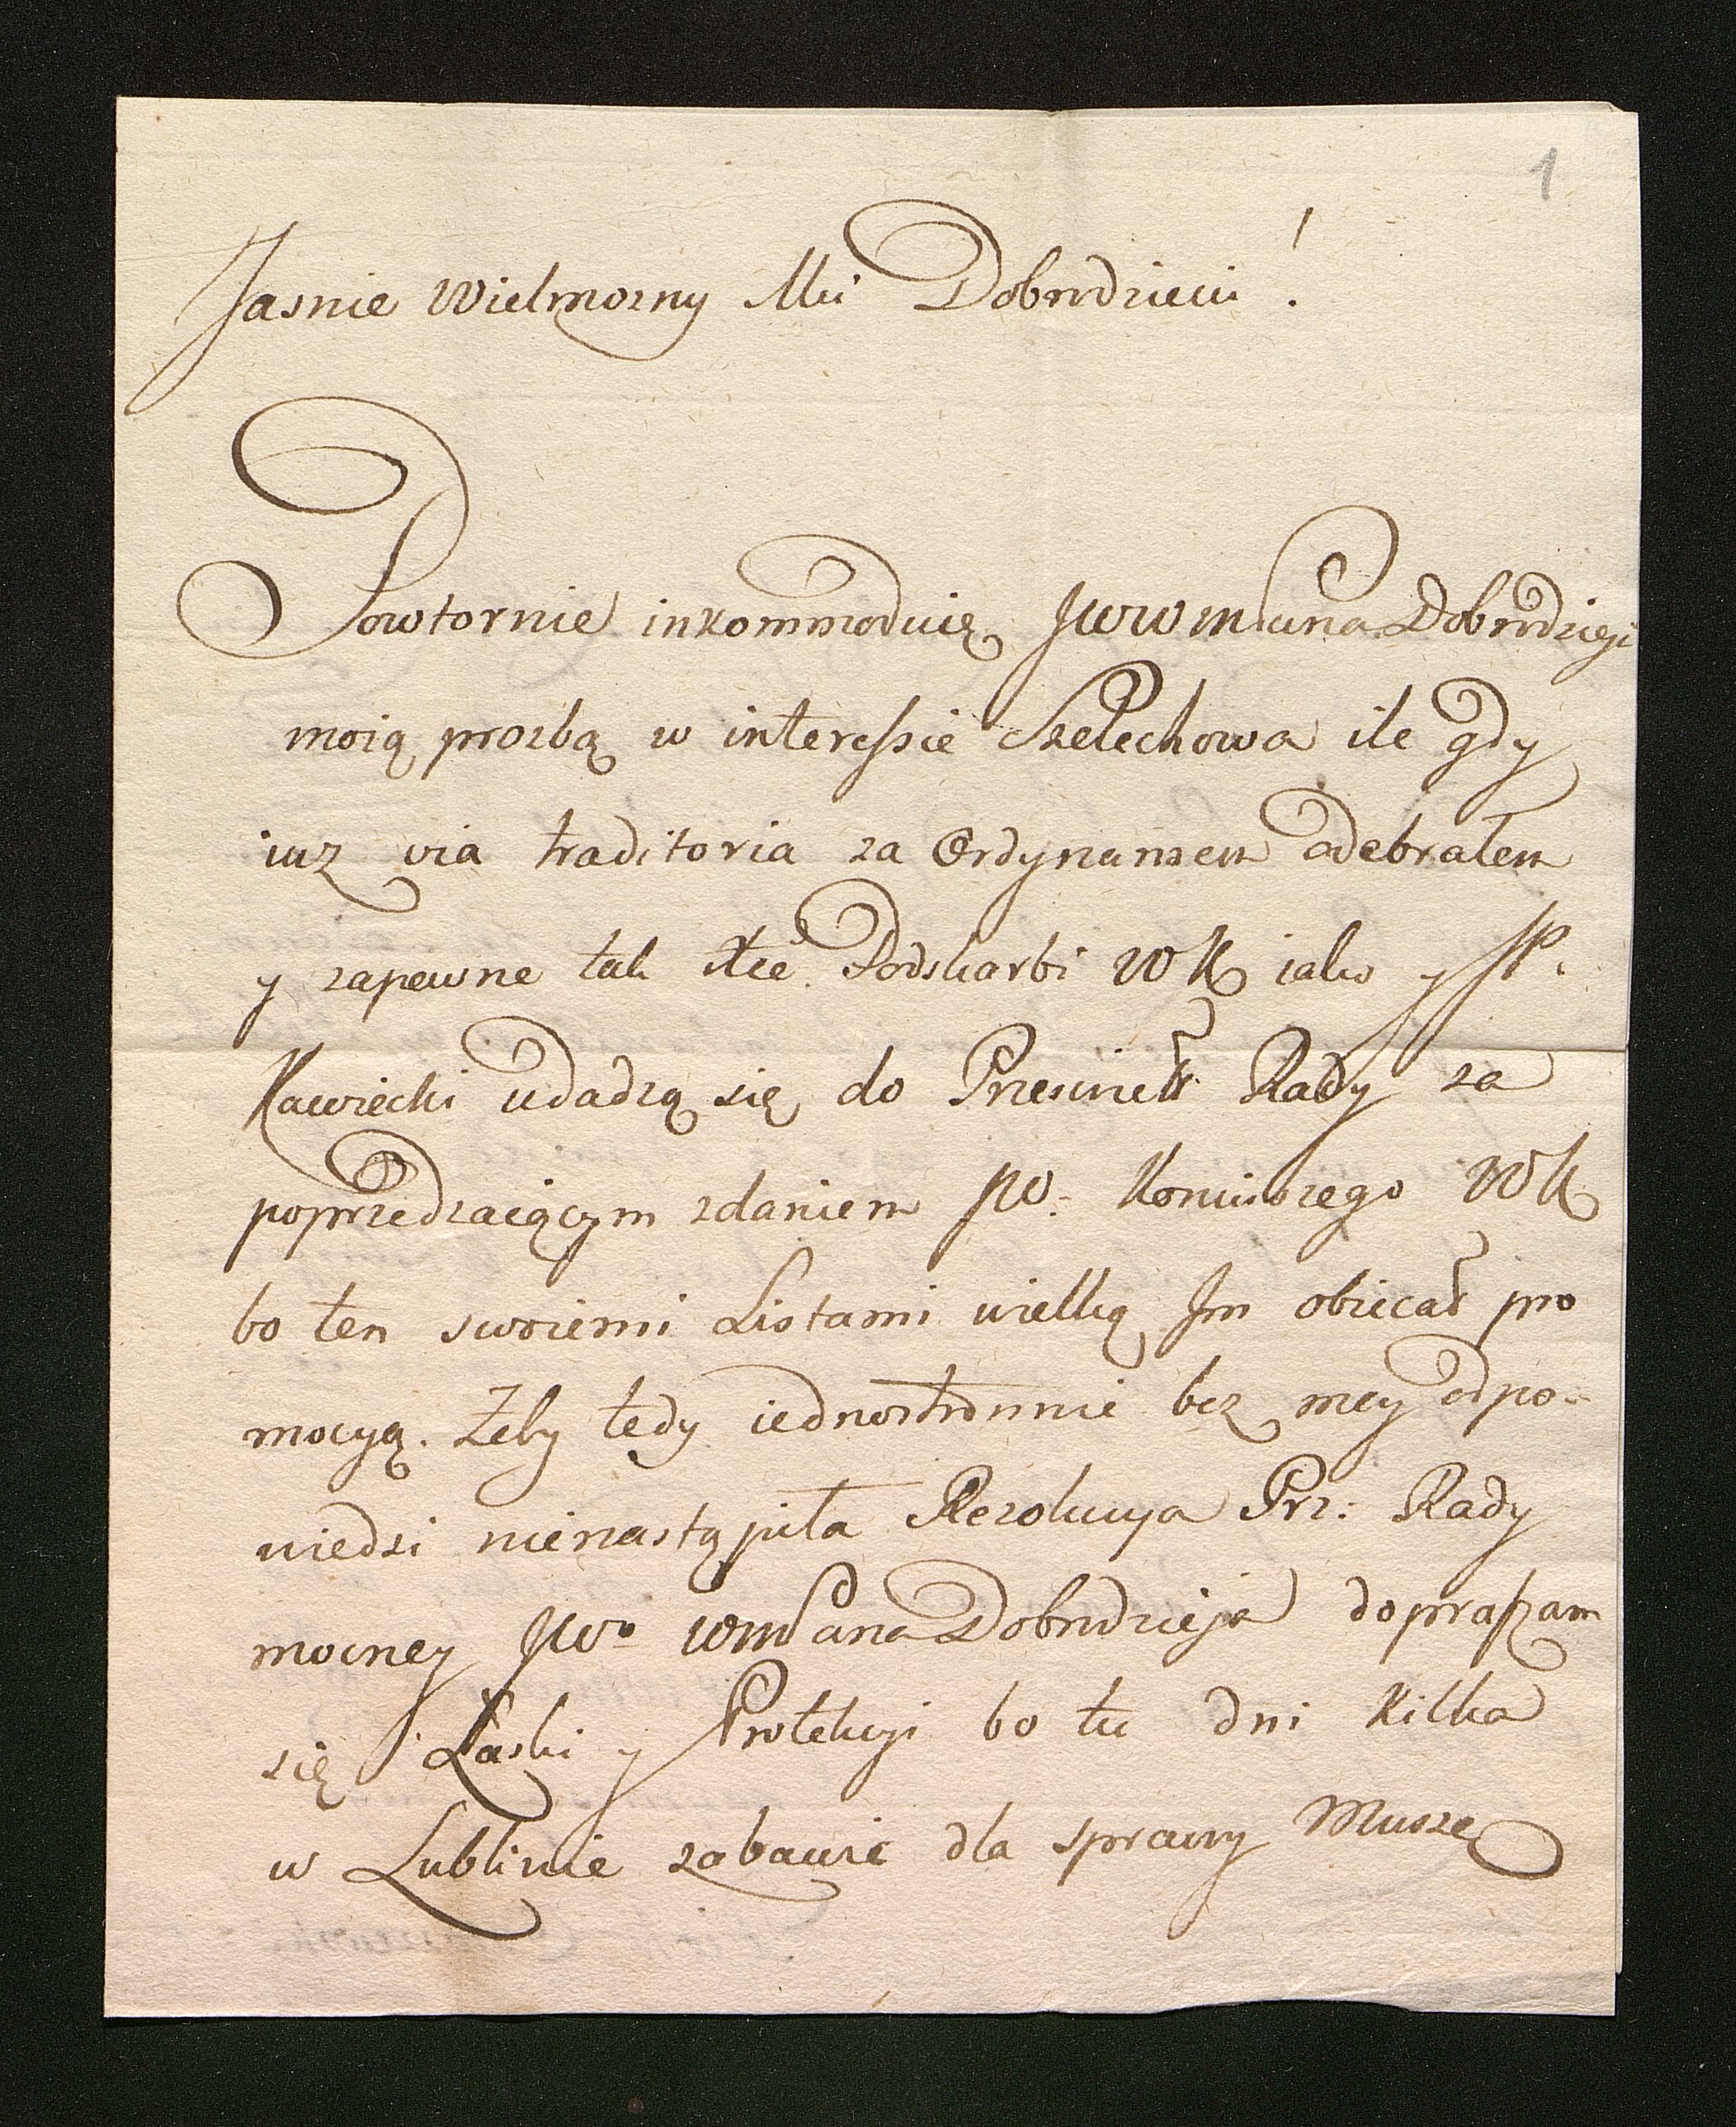 1
Jasnie Wielmozny Mci Dobrodzieiu!
Powtornie inkommoduię JWWMPana Dobrodzieja
moią prozbą w interessie Szelechowa ile gdy
iuz via traditoria za Ordynansem odebrałem
y zapewne tak Podskarbi WK iako y JP.
Kawiecki udadzą się do Rady za
poprzedzaiącym zdaniem JW. Koniuszego WK
bo ten swoiemi Listami wielką Im obiecał pro
mocyą. Zeby tedy iednostronnie bez mey odpo-
wiedzi nienastąpiła Rezolucya Prz: Rady
mocney JWo WMPana Dobrodzieja dopraszam
się Łaski y Protekcyi bo tu dni kilka
w Lublinie zabawić dla sprawy Muszę